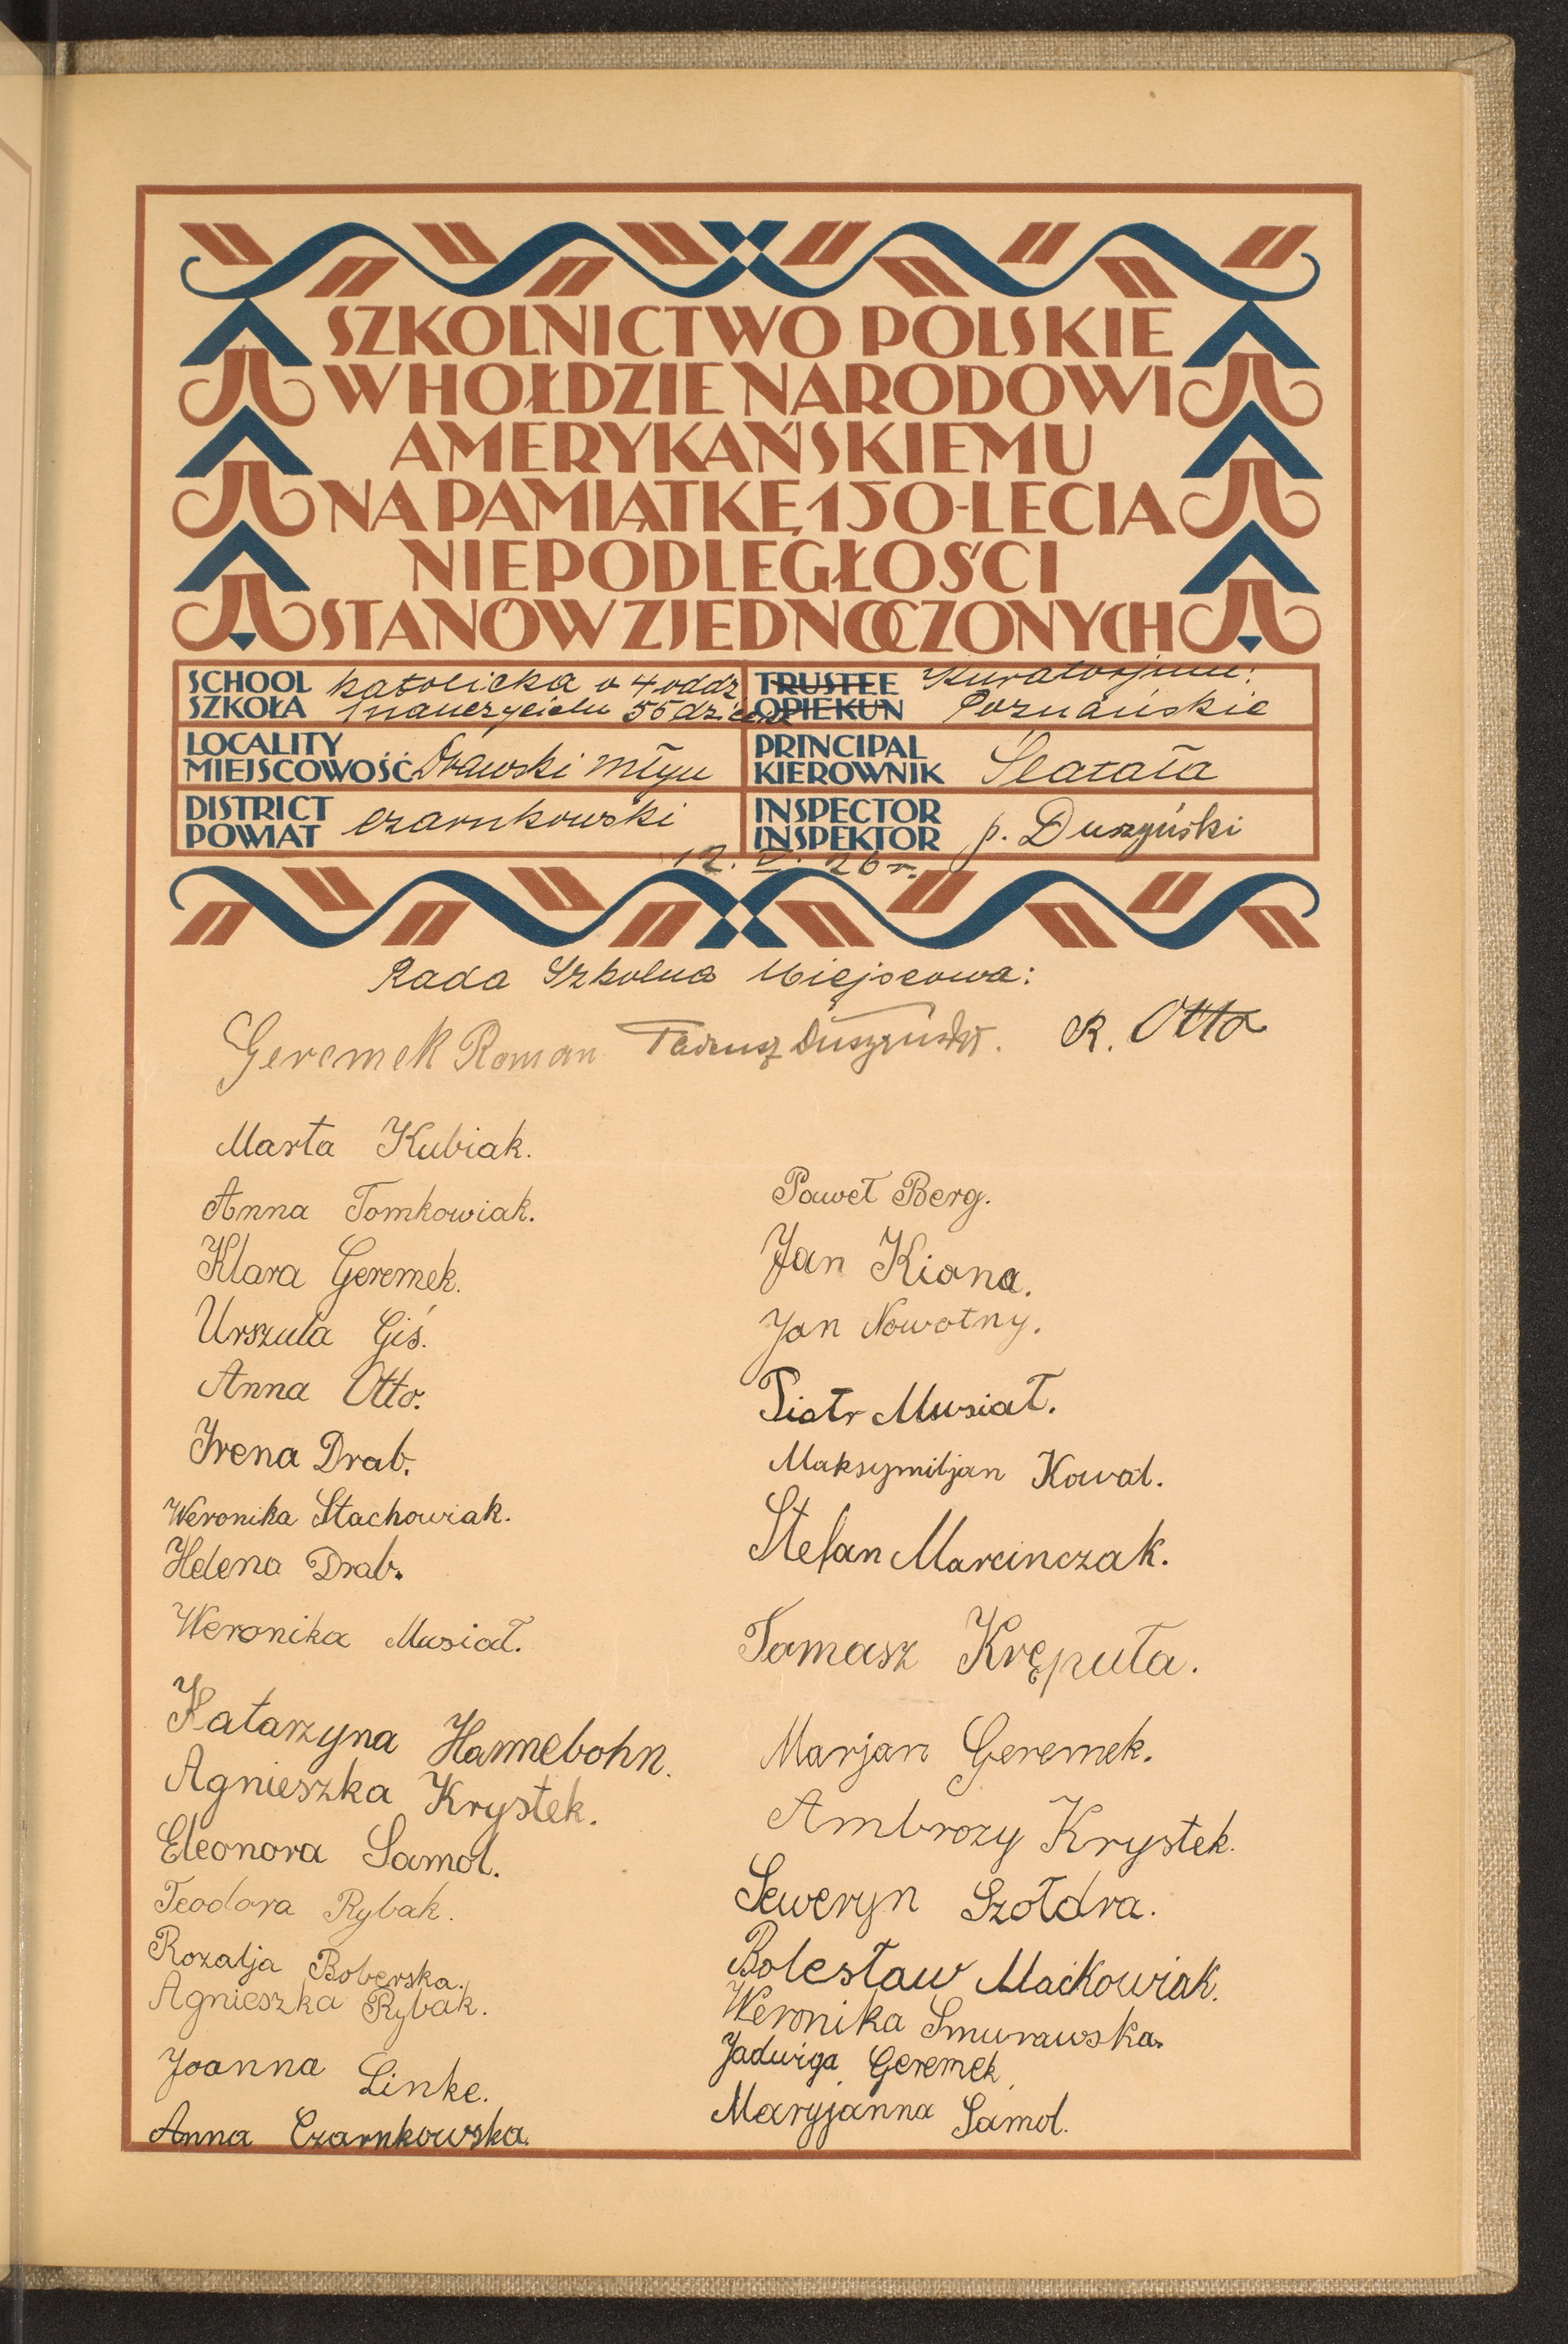 SZKOLNICTWO POLSKIE
W HOŁDZIE NARODOWI
AMERYKAŃSKIEMU
NA PAMIĄTKĘ 150-LECIA
NIEPODLEGŁOŚCI
STANÓW ZJEDNOCZONYCH
SCHOOL
SZKOŁA
katolicka o 4 oddz
1 nauczycielu 55 dzieci
TRUSTEE
OPIEKUN
Kuratorjum:
Poznańskie
LOCALITY
MIEJSCOWOŚĆ
Drawski Młyn
PRINCIPAL
KIEROWNIK
DISTRICT
POWIAT
czarnkowski
INSPECTOR
INSPEKTOR
p. Duszyński
12. V. 26 r.
Rada Szkolna Miejscowa:
Geremek Roman Tadeusz Duszyński. R. Otto
Marta Kubiak.
Anna Tomkowiak.
Klara Geremek.
Urszula Giś.
Anna Otto.
Irena Drab.
Weronika Stachowiak.
Helena Drab.
Weronika Musiał.
Katarzyna Hannebohn.
Agnieszka Krystek.
Eleonora Samol.
Teodora Rybak.
Rozalja Boberska.
Agnieszka Rybak.
Joanna Linke.
Anna Czarnkowska.
Paweł Berg.
Jan Kiona.
Jan Nowotny.
Piotr Musiał.
Maksymiljan Kowal.
Stefan Marcinczak.
Tomasz Kręputa.
Marjan Geremek.
Ambrozy Krystek.
Seweryn Szołdra.
Bolesław Maćkowiak.
Weronika Smurawska.
Jadwiga Geremek.
Maryjanna Samol.